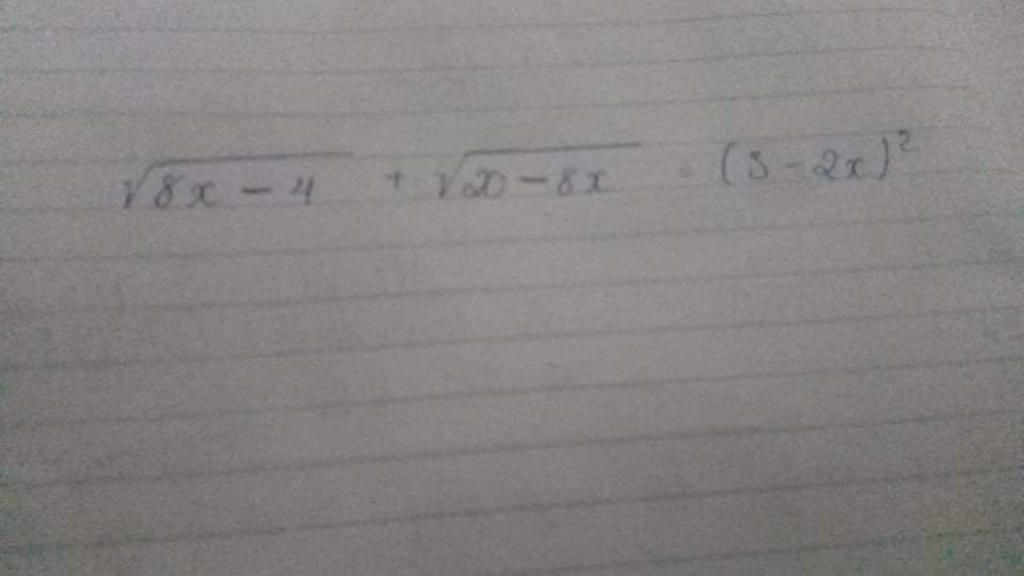 √(8x - 4) + √(20 - 8x) = (3 - 2x)²